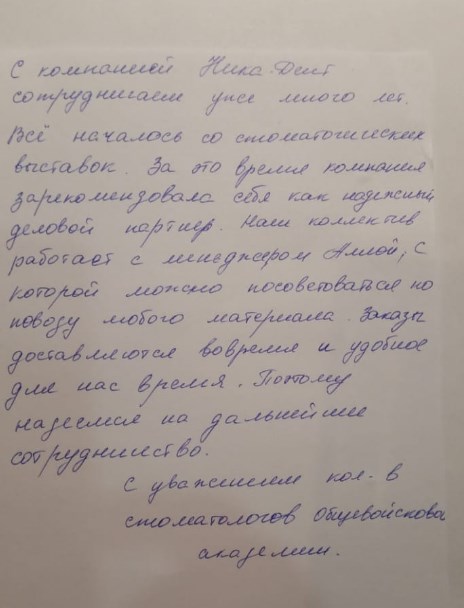 С компанией Ника-Дент
сотрудничаем уже много лет.
Всё началось со стоматологических
выставок. За это время компания
зарекомендовала себя как надежный
деловой партнер. Наш коллектив
работает с менеджером Аллой, с
которой можно посоветоваться по
поводу любого материала. Заказы
доставляются вовремя и удобное
для нас время. Поэтому
надеемся на дальнейшее
сотрудничество.
С уважением кол-в
стоматологов Общевойскова
академии.